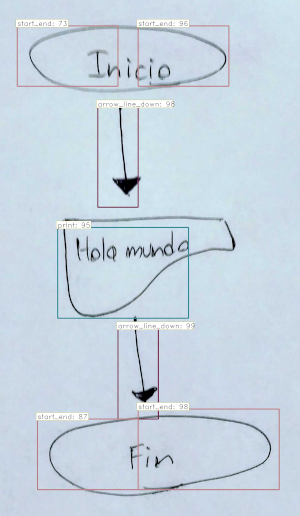 start_end: 73
start_end: 96
Inicio
arrow_line_down: 98
print: 95
Hola mundo
arrow_line_down: 99
start_end: 87
start_end: 98
Fin